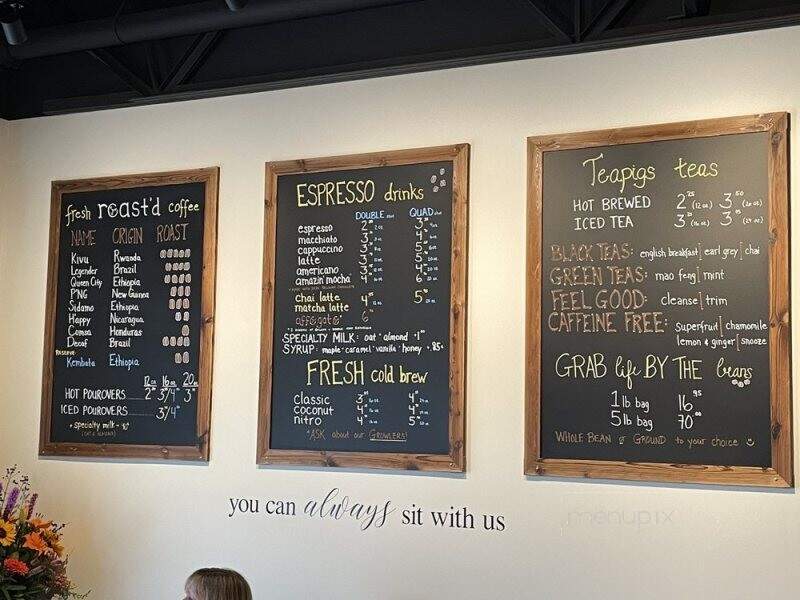 fresh roast'd coffee
NAME ORIGIN ROAST
Kivu Rwanda
Legender Brazil
Queen City Ethiopia
PNG New Guinea
Sidamo Ethiopia
Happy Nicaragua
Comsa Honduras
Decaf Brazil
RESERVE
Kembata Ethiopia
12 oz 16 oz 20 oz
HOT POUROVERS
ICED POUROVERS
+ specialty milk
ESPRESSO drinks
DOUBLE shot QUAD shot
espresso
macchiato
cappuccino
latte
americano
amazin' mocha
chai latte
matcha latte
affogato
SPECIALTY MILK: oat almond
SYRUP: maple caramel vanilla honey
FRESH cold brew
classic
coconut
nitro
*ASK about our GROWLERS!
Teapigs teas
HOT BREWED (12 oz) (20 oz)
ICED TEA (16 oz) (24 oz)
BLACK TEAS: english breakfast | earl grey | chai
GREEN TEAS: mao feng | mint
FEEL GOOD: cleanse | trim
CAFFEINE FREE: superfruit | chamomile
lemon & ginger | snooze
GRAB life BY THE beans
1 lb bag 16 95
5 lb bag 70 00
WHOLE BEAN or GROUND to your choice
you can always sit with us
menupix